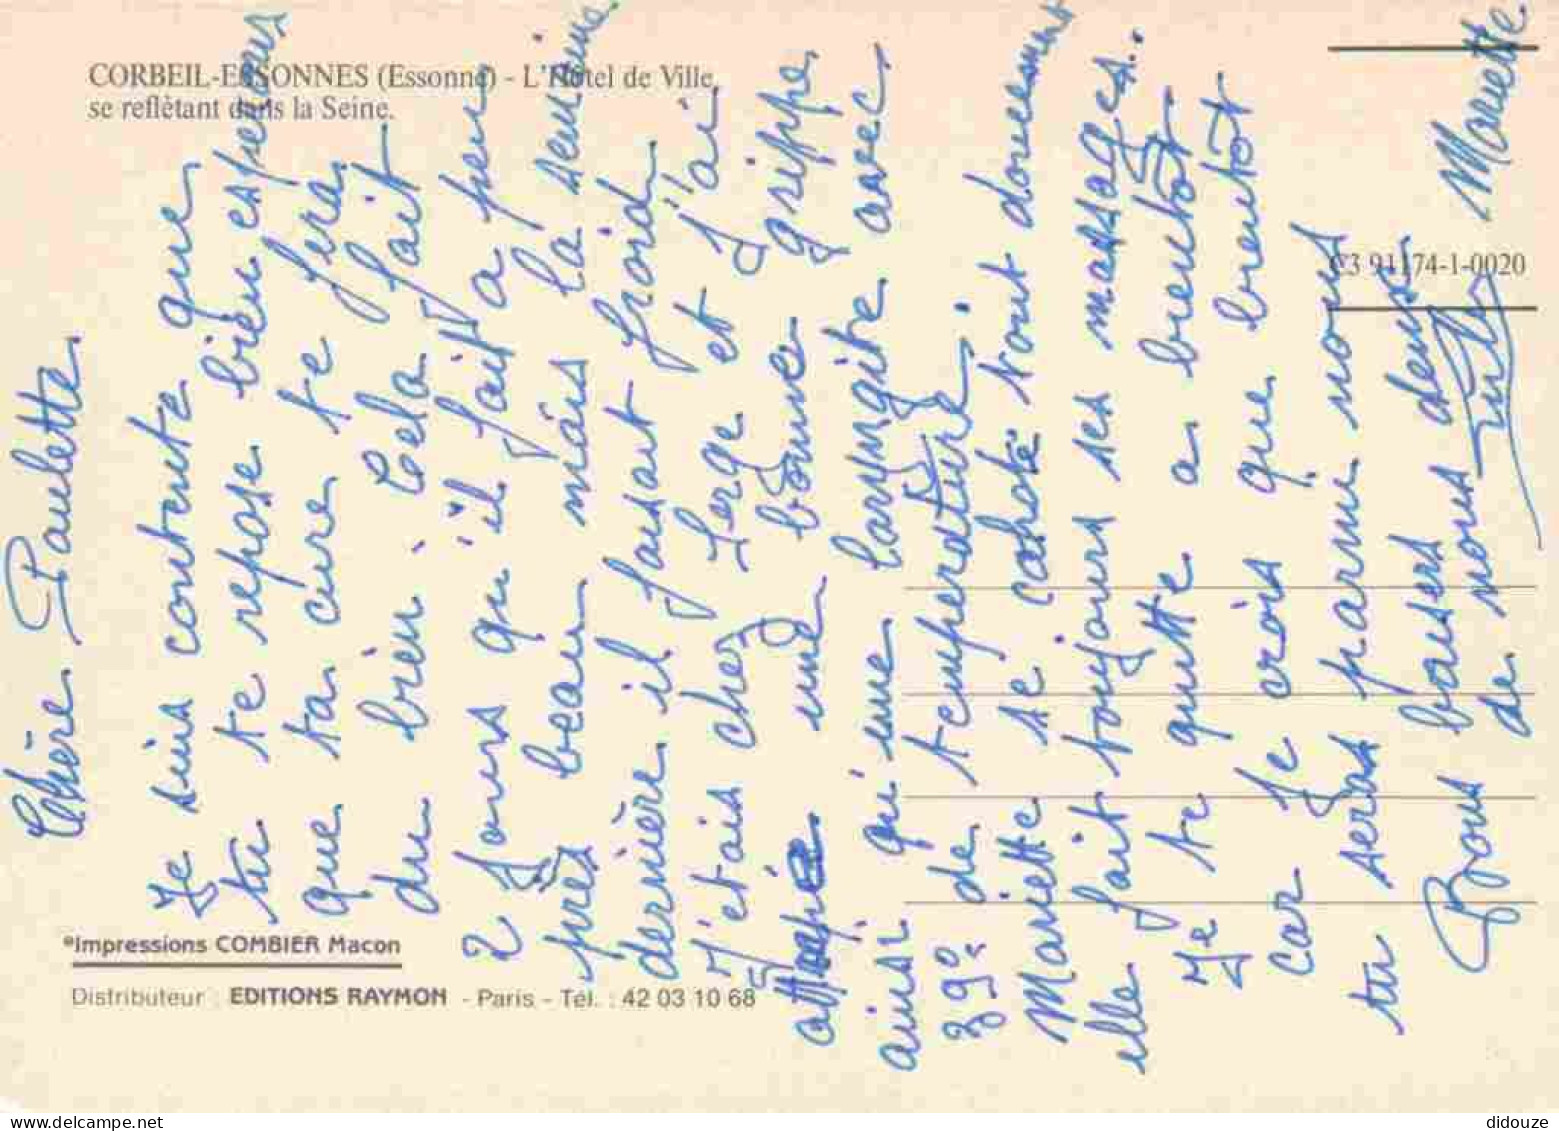 CORBEIL-ESSONNES (Essonne) - L'Hôtel de Ville
se reflètant dans la Seine.
C3 91174-1-0020
Impressions COMBIER Macon
Distributeur : EDITIONS RAYMON - Paris - Tél. : 42 03 10 68
Chère Paulette
Je suis contente que
tu te repose bien esperons
que ta cure te fera
du bien. Cela fait
2 Jours qu'il fait a peu
près beau mais la semaine
dernière il faisait froid
J'etais chez Serge et J'ai
attrapé une bonne grippe
ainsi qu'une laryngite avec
39° de temperature.
Mariette se cahote tout doucement
elle fait toujours ses massages.
Je te quitte a bientot
car Je crois que bientôt
tu seras parmi nous
Bons baisers
de nous deux
Mariette
didouze